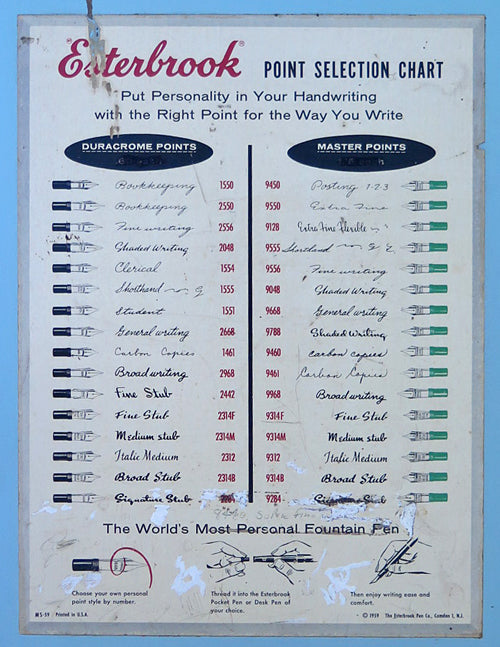 Esterbrook® POINT SELECTION CHART
Put Personality in Your Handwriting
with the Right Point for the Way You Write
DURACROME POINTS
MASTER POINTS
Bookkeeping 1550 9450 Posting 1-2-3
Bookkeeping 2550 9550 Extra Fine
Fine writing 2556 9128 Extra Fine Flexible
Shaded Writing 2048 9555 Shorthand
Clerical 1554 9556 Fine writing
Shorthand 1555 9048 Shaded Writing
Student 1551 9668 General writing
General writing 2668 9788 Shaded Writing
Carbon Copies 1461 9460 carbon copies
Broad writing 2968 9461 Carbon Copies
Fine Stub 2442 9968 Broad writing
Fine Stub 2314F 9314F Fine Stub
Medium stub 2314M 9314M Medium stub
Italic Medium 2312 9312 Italic Medium
Broad Stub 2314B 9314B Broad Stub
Signature Stub 9284 Signature Stub
The World's Most Personal Fountain Pen
Choose your own personal
point style by number.
Thread it into the Esterbrook
Pocket Pen or Desk Pen of
your choice.
Then enjoy writing ease and
comfort.
MS-59 Printed in U.S.A.
© 1959 The Esterbrook Pen Co., Camden 1, N.J.